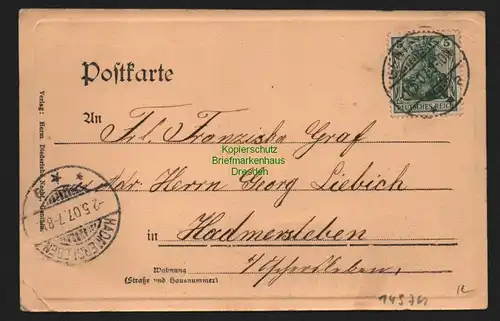 Postkarte
5
DEUTSCHES REICH
An
Frl. Franziska Graf
Kopierschutz
Briefmarkenhaus
Dresden
adr. Herrn Georg Liebich
in Hadmersleben
Wohnung
(Straße und Hausnummer)
-2.5.07.7-8
HADMERSLEBEN
Verlag: Herm.
149761